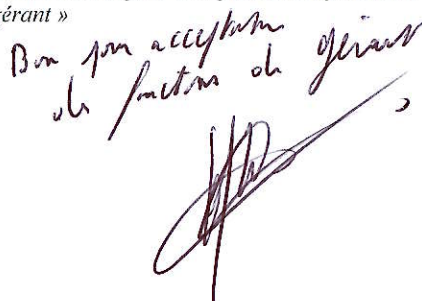 gérant »
Bon pour acceptation
des fonctions de gérant